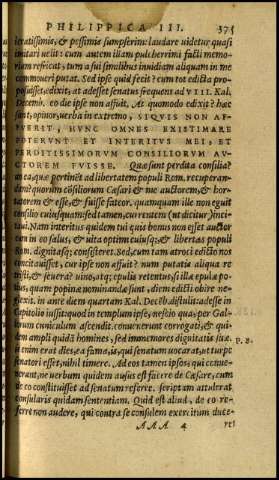 PHILIPPICA III. 375
sceratissimis, & pessimis sumpserim: laudare uidetur quasi
imitari uelit: cum autem illam pulcherrimi facti memo-
riam reficit, tum a sui similibus inuidiam aliquam in me
commoueri putat. Sed ipse quid fecit? cum tot edicta pro-
posuisset, edixit, ut adesset senatus frequens ad VIII. Kal.
Decemb. eo die ipse non affuit. At quomodo edixit? hæc
sunt, opinor, uerba in extremo, SIQVIS NON AF-
FVERIT, HVNC OMNES EXISTIMARE
POTERVNT ET INTERITVS MEI, ET
PERDITISSIMORVM CONSILIORVM AV-
CTOREM FVISSE. Quæ sunt perdita consilia?
an ea, quæ pertinēt ad libertatem populi Rom. recuperan-
dam? quorum cōsiliorum Cæsari & me auctorem, & hor-
tatorem & esse, & fuisse fateor. quamquam ille non eguit
consilio cuiusquam: sed tamen, currentem (ut dicitur) inci-
taui. Nam interitus quidem tui quis bonus non esset auctor?
cum in eo salus, & uita optimi cuiusq;, & libertas populi
Rom. dignitasq; consisteret. Sed, cum tam atroci edicto nos
concitauisset, cur ipse non affuit? num putatis aliqua re
tristi, & seuera? uino, atq; epulis retentus, si illæ epulæ po-
tius, quam popinæ nominandæ sunt, diem edicti obire ne-
glexit. in ante diem quartam Kal. Decēb. distulit: adesse in
Capitolio iussit: quod in templum ipse, nescio qua, per Gal-
lorum cuniculum ascendit. conuenerunt corrogati, & qui-
dem ampli quidā homines, sed immemores dignitatis suæ.
is enim erat dies, ea fama, is, qui senatum uocarat, ut turpe
senatori esset, nihil timere. Ad eos tamen ipsos, qui conue-
nerant, ne uerbum quidem ausus est facere de Cæsare, cum
de eo constituisset ad senatum referre. scriptam attulerat
consularis quidam sententiam. Quid est aliud, de eo re-
ferre non audere, qui contra se consulem exercitum duce-
AAA 4 ret
P. 8.